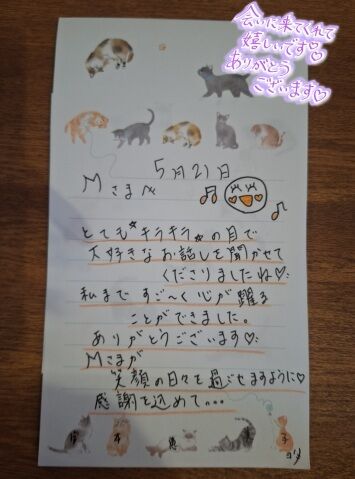 会いに来てくれて
嬉しいです♡♡
ありがとう
ございます♡
5月21日
Mさまへ
とても*キラキラ*の目で
大好きなお話しを聞かせて
くださりましたね♡
私まで すご〜く心が躍る
ことができました。
ありがとうございます♡
Mさまが
笑顔の日々を過ごせますように♡
感謝を込めて・・・